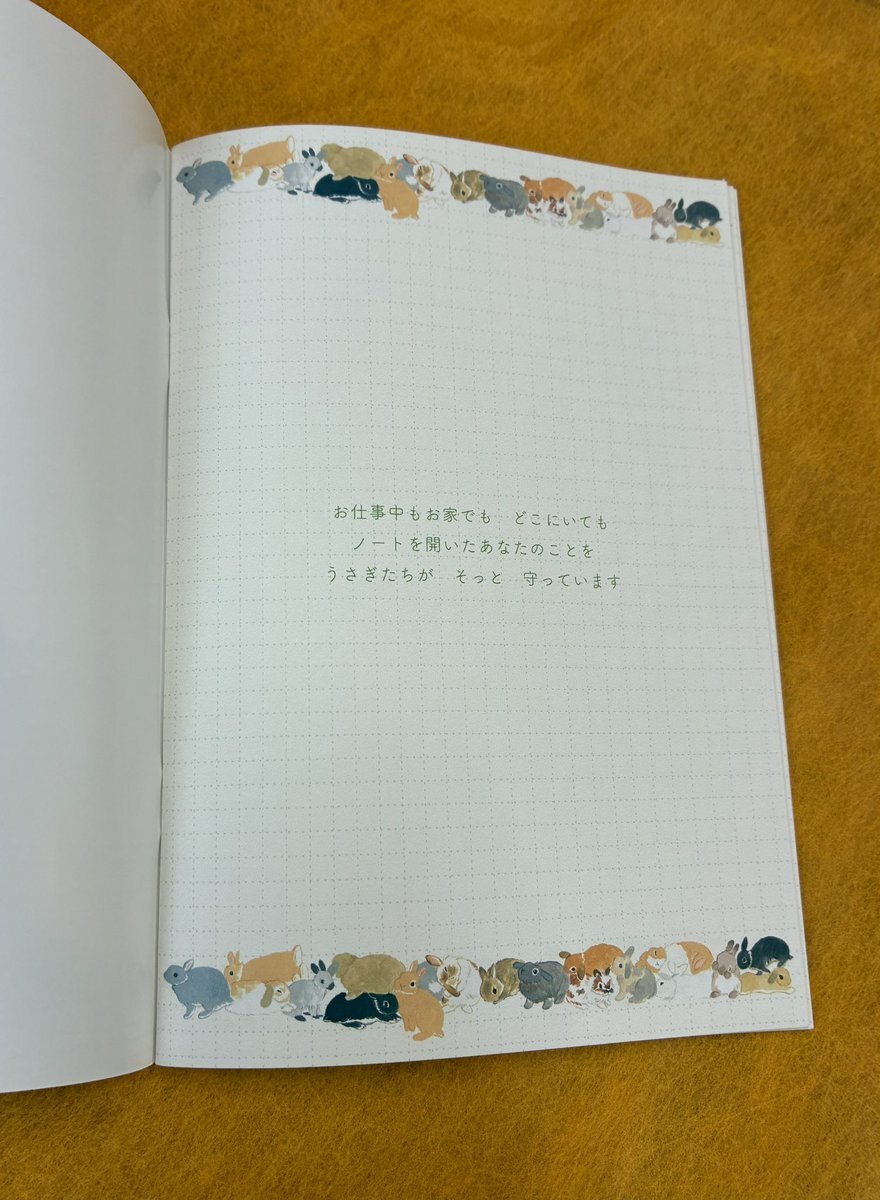 お仕事中もお家でも　どこにいても
ノートを開いたあなたのことを
うさぎたちが　そっと　守っています